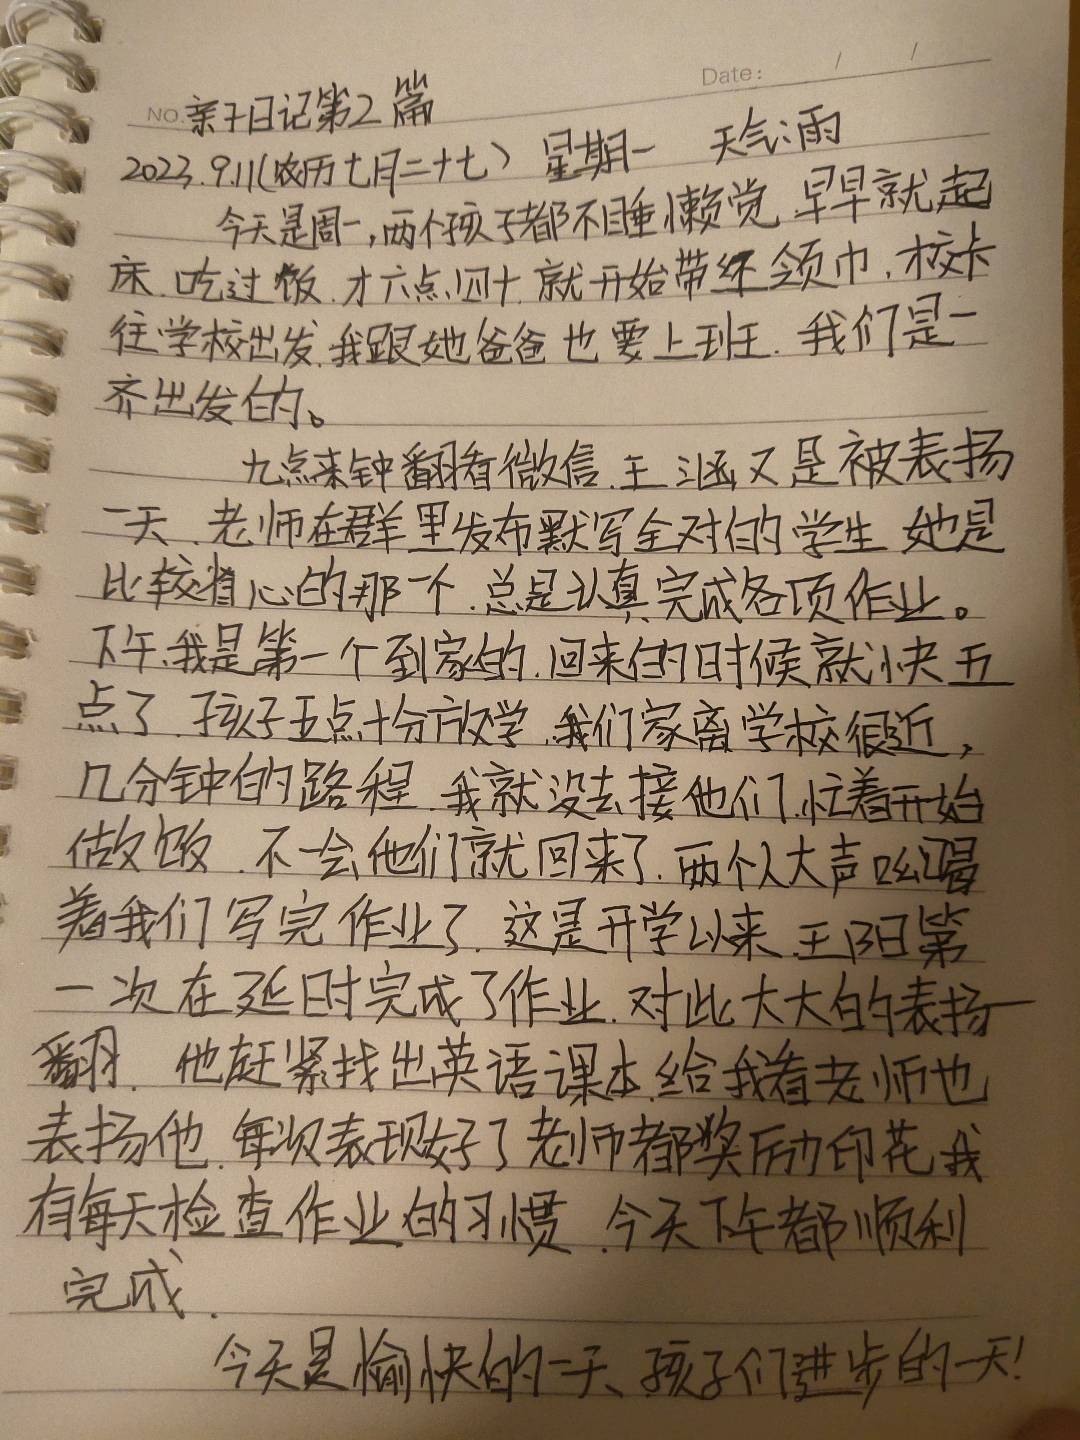 Date: / /
NO. 亲子日记第2篇
2023.9.11(农历七月二十七) 星期一 天气:雨
今天是周一,两个孩子都不睡懒觉.早早就起
床.吃过饭.才六点四十.就开始带红领巾.校卡
往学校出发.我跟她爸爸也要上班.我们是一
齐出发的。
九点来钟翻看微信.王涵又是被表扬
一天.老师在群里发布默写全对的学生.她是
比较省心的那一个.总是认真完成各项作业。
下午.我是第一个到家的.回来的时候就快五
点了.孩子五点十分放学.我们家离学校很近,
几分钟的路程.我就没去接他们.忙着开始
做饭.不一会他们就回来了.两个人大声吆喝
着我们写完作业了.这是开学以来.王阳第
一次在延时完成了作业.对此大大的表扬一
翻.他赶紧找出英语课本.给我看老师也
表扬他.每次表现好了老师都奖励印花.我
有每天检查作业的习惯.今天下午都顺利
完成.
今天是愉快的一天、孩子们进步的一天!